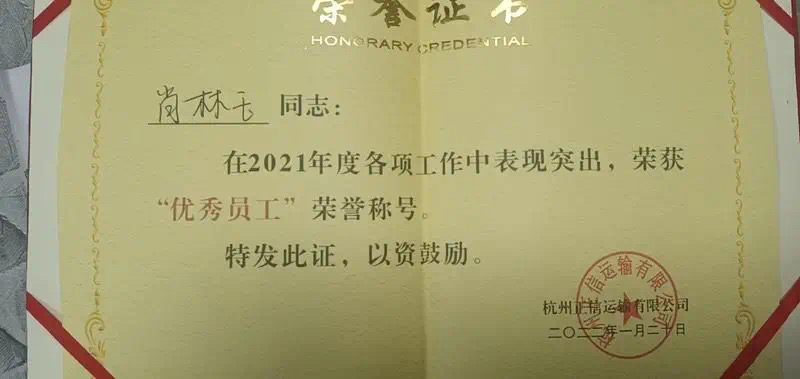 荣誉证书
HONORARY CREDENTIAL
肖林玉 同志：
在2021年度各项工作中表现突出，荣获
“优秀员工”荣誉称号。
特发此证，以资鼓励。
杭州正信运输有限公司
杭州正信运输有限公司
二〇二二年一月二十日